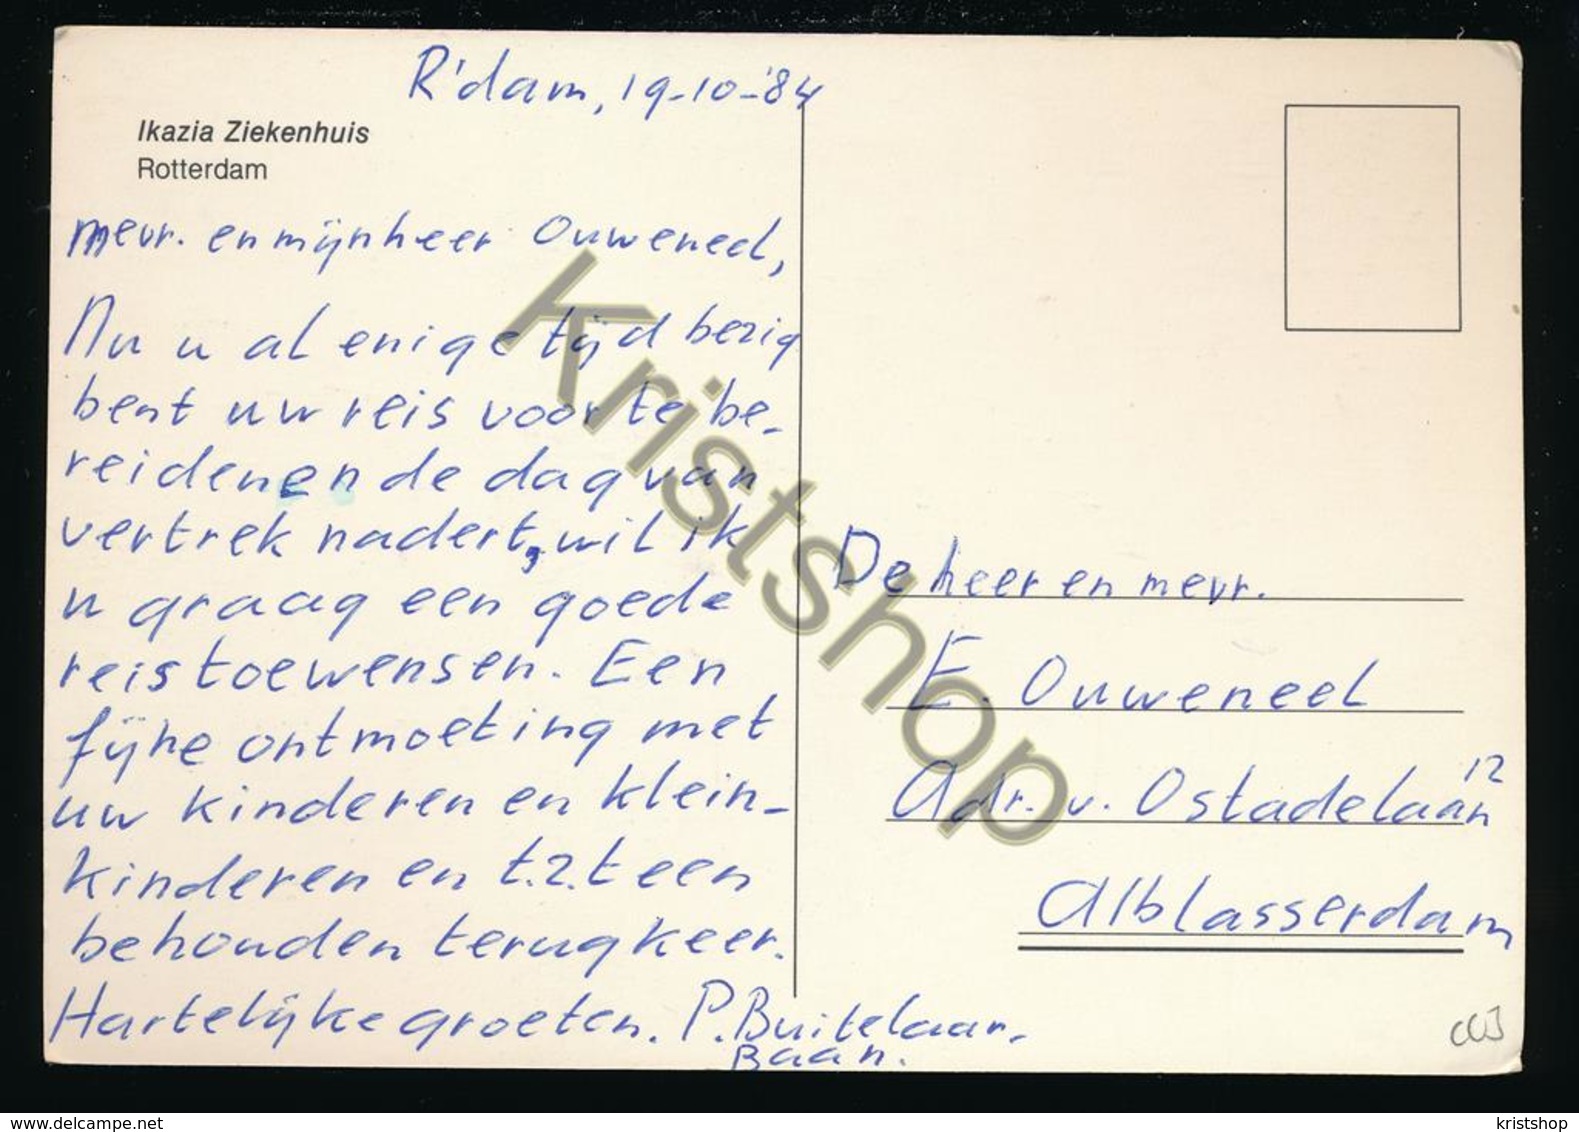 R'dam, 19-10-'84
Ikazia Ziekenhuis
Rotterdam
mevr. en mijnheer Ouweneel,
Nu u al enige tijd bezig
bent uw reis voor te be-
reiden en de dag van
vertrek nadert, wil ik
u graag een goede
reis toewensen. Een
fijne ontmoeting met
uw kinderen en klein-
kinderen en t.z.t een
behouden terugkeer.
Hartelijke groeten. P. Buitelaar-
Baan.
De heer en mevr.
E. Ouweneel
Adr. v. Ostadelaan 12
Alblasserdam
Kristshop
www.delcampe.net
kristshop